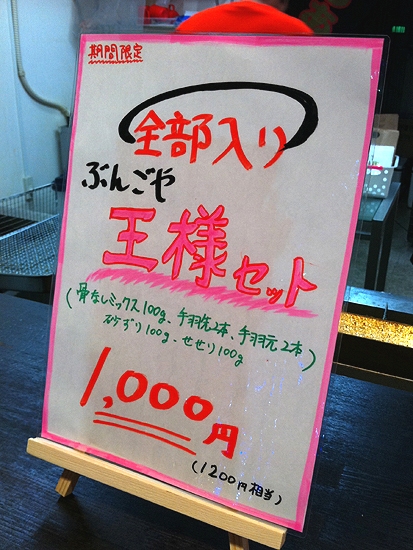 期間限定
全部入り
ぶんごや
王様セット
(骨なしミックス100g、手羽先2本、手羽元2本
砂ずり100g、せせり100g)
1,000円
(1200円相当)